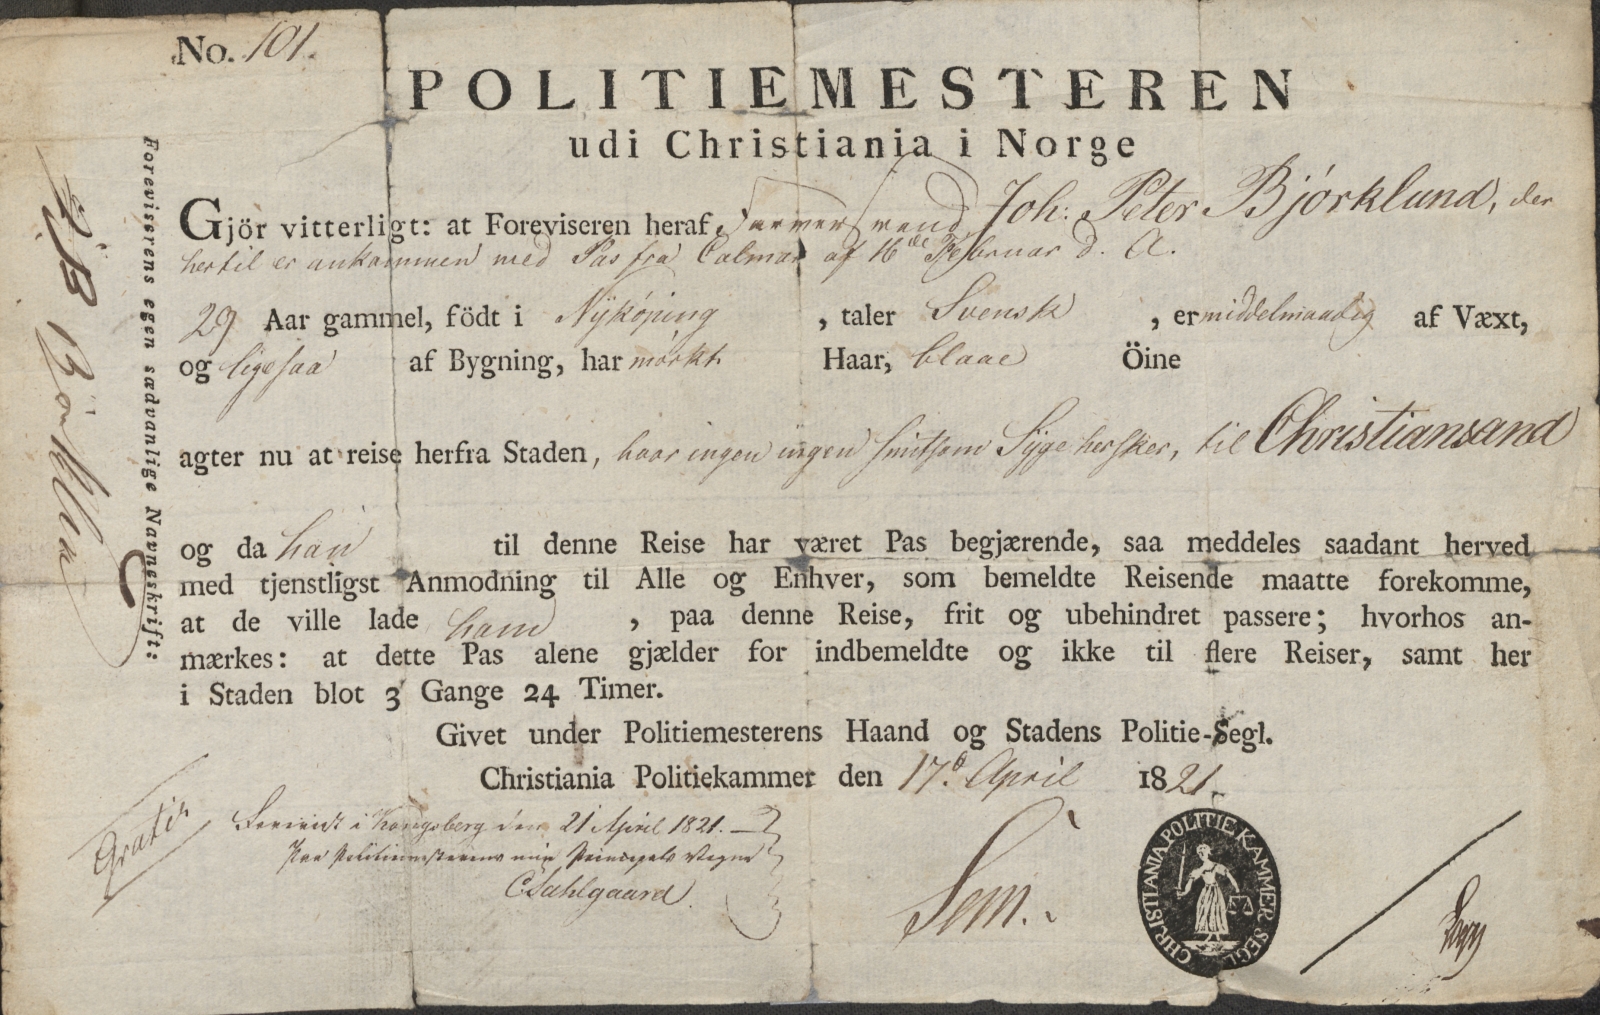 No. 101.
POLITIEMESTEREN
udi Christiania i Norge
Gjör vitterligt: at Foreviseren heraf, Farversvend Joh: Peter Bjørklund, der
hertil er ankommen med Pas fra Calmar af 16de Februar d. A.
29 Aar gammel, födt i Nykøping, taler Svensk, er middelmaadig af Væxt,
og ligesaa af Bygning, har mørkt Haar, blaae Öine
agter nu at reise herfra Staden, hvor ingen ingen smitsom Syge hersker, til Christiansand
og da han til denne Reise har været Pas begjærende, saa meddeles saadant herved
med tjenstligst Anmodning til Alle og Enhver, som bemeldte Reisende maatte forekomme,
at de ville lade ham, paa denne Reise, frit og ubehindret passere; hvorhos an-
mærkes: at dette Pas alene gjælder for indbemeldte og ikke til flere Reiser, samt her
i Staden blot 3 Gange 24 Timer.
Givet under Politiemesterens Haand og Stadens Politie-Segl.
Christiania Politiekammer den 17d April 1821.
Gratis
i Kongsberg den 21 April 1821.
Politiemesterens min Principals Vegne
CDahlgaard.
Sem.
CHRISTIANIA POLITIE KAMMER SEGL
Foreviserens egen sædvanlige Navneskrift: